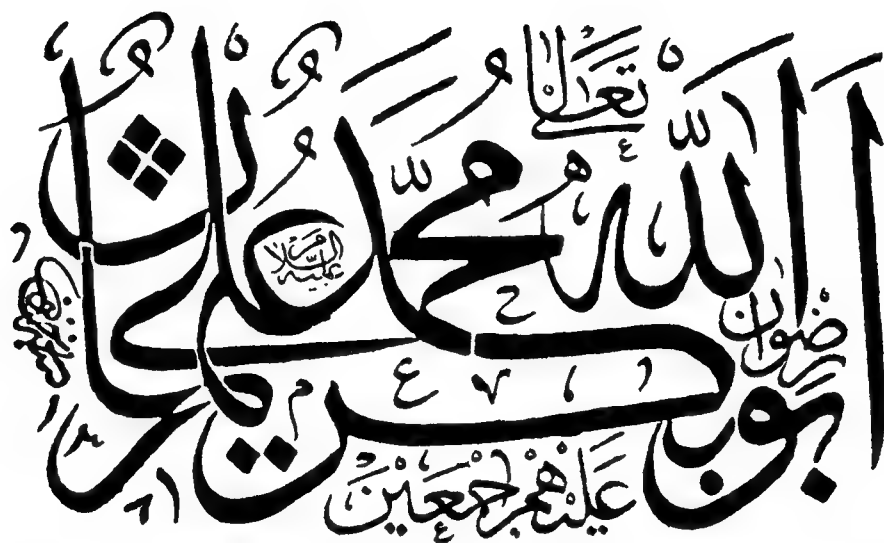 الله تعالى
محمد عليه السلام
ابوبكر عمر عثمان علي
رضوان الله تعالى عليهم اجمعين